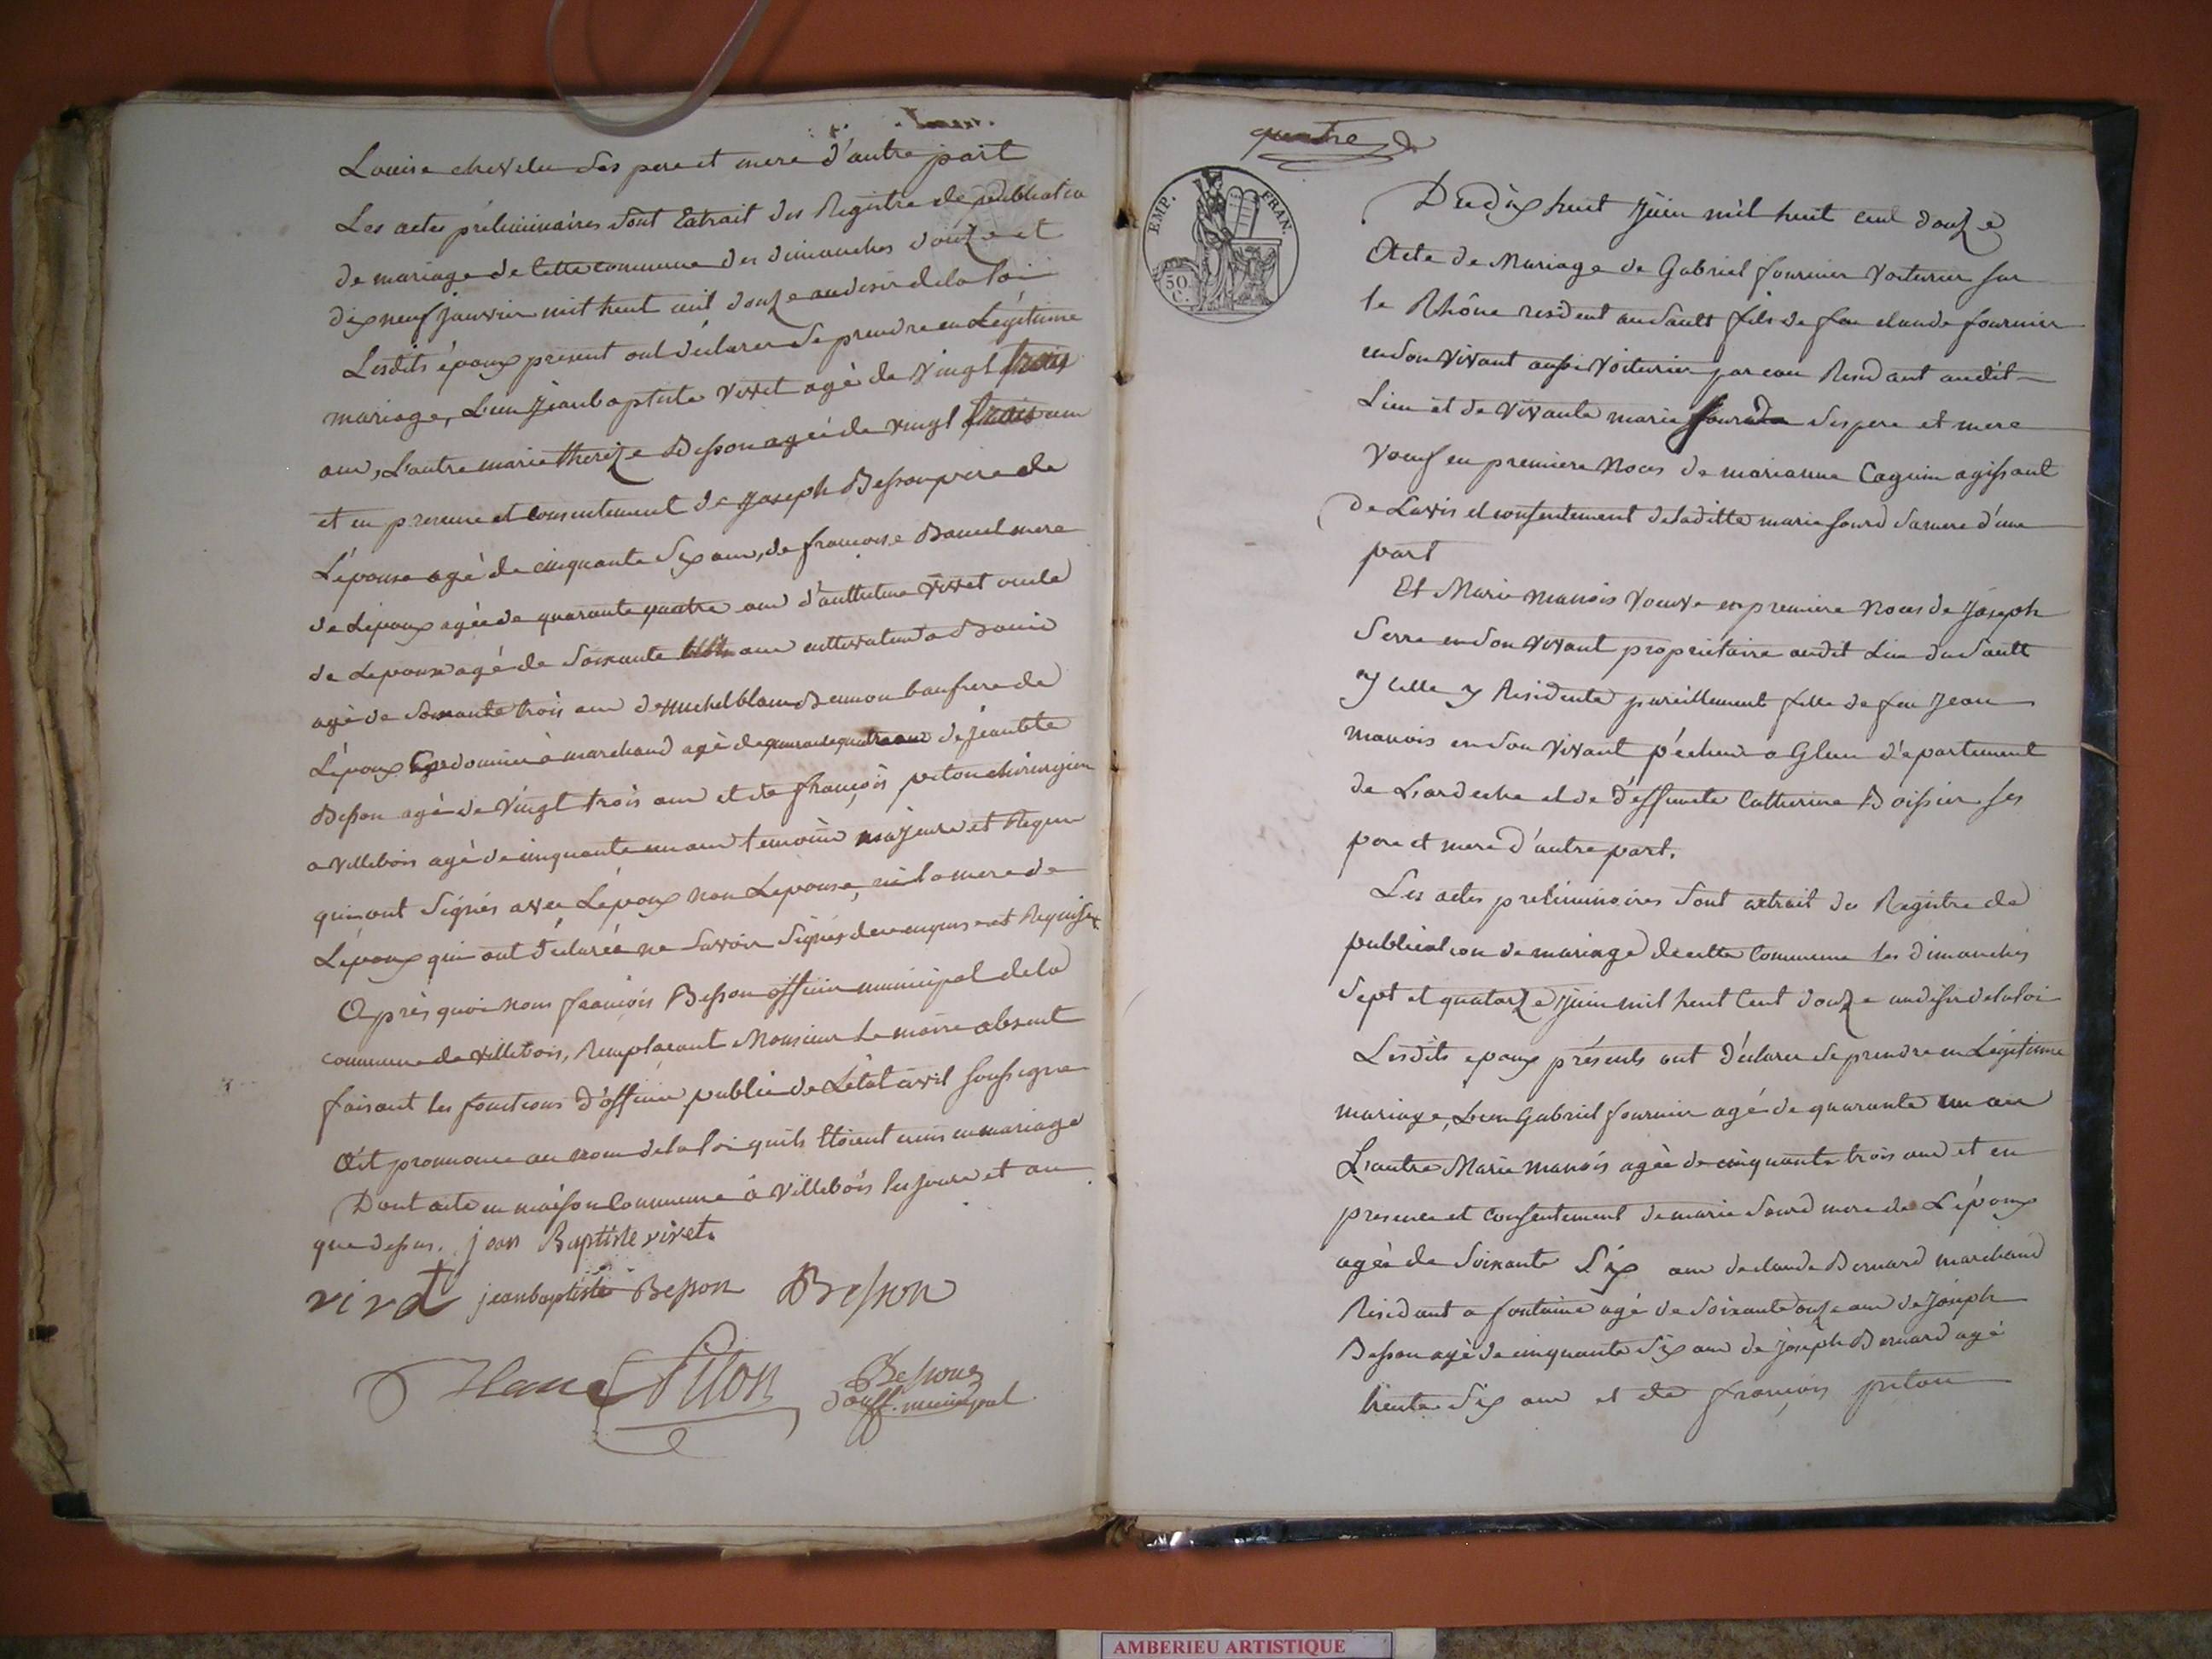 Louise chevelu ses pere et mere d'autre part
Les actes préliminaires sont Extrait des Registre de publication
de mariage de cette commune des dimanches douze et
dix neuf janvier mil huit cent douze au desir de la loi
Lesdits époux présent ont déclarer se prendre en Légitime
mariage, L'un Jean baptiste vivet agé de vingt trois
ans, L'autre marie thereze Besson agée de vingt trois ans
et en presence et consentement de Joseph Besson pere de
L'épouse agé de cinquante six ans, de francoise mere
de L'époux agée de quarante quatre ans vivet oncle
de Lepouse agé de soixante ans
agé de soixante trois ans de michel blanc beaufrere de
L'époux marchand agé de quarante quatre ans de jean bte
Besson agé de vingt trois ans et de françois piton chirurgien
a villebois agé de cinquante un ans temoins majeurs et Requis
qui ont signés avec L'époux non Lepouse, ni la mere de
L'époux qui ont déclarée ne savoir signés de ce enquis et Requises
Après quoi nous françois Besson officier municipal de la
commune de villebois, Remplacant Monsieur Le maire absent
faisant les fonctions d'officier public de L'état civil soussigné
a prononcé au nom de la loi quils Etoient unis en mariage
Dont acte en maison Commune à villebois les jours et an
que dessus. jean Baptiste vivet
vivet jeanbaptiste Besson Besson
Blanc Piton Besson
off. municipal
quatre
EMP. FRAN.
50 C.
Du dix huit Juin mil huit cent douze
Acte de Mariage de Gabriel fournier voiturier sur
le Rhône resident au Sault fils de feu claude fournier
en son vivant aussi voiturier par eau Residant audit
Lieu et de vivante marie sourd ses pere et mere
veuf en premiere Noces de marianne Caguin agissant
de Lavis et consentement de laditte marie sourd sa mere d'une
part
Et Marie manois veuve en premiere Noces de Joseph
Serre en son vivant propriétaire audit Lieu du Sault
y celle y Residente pareillement fille de feu Jean
manois en son vivant pécheur a Glun département
de L'ardeche et de déffunte Catherine Boissier ses
pere et mere d'autre part.
Les actes preliminaires sont extrait du Registre de
publication de mariage de cette Commune les dimanches
sept et quatorze juin mil huit Cent douze au desir de la loi
Lesdits epoux présents ont déclarer se prendre en Légitime
mariage, L'un Gabriel fournier agé de quarante un ans
L'autre Marie manois agée de cinquante trois ans et en
presence et consentement de marie Sourd mere de L'époux
agée de soixante six ans de claude Bernard marchand
Residant a fontaine agé de soixante onze ans de joseph
Besson agé de cinquante six ans de joseph Bernard agé
trente six ans et de françois piton
AMBERIEU ARTISTIQUE